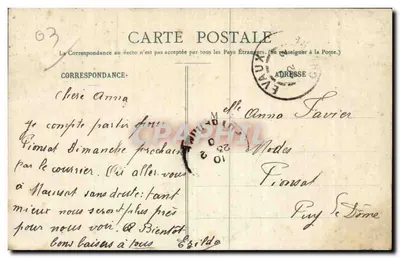 63
CARTE POSTALE
La Correspondance au recto n'est pas acceptée par tous les Pays Étrangers. (Se renseigner à la Poste.)
CORRESPONDANCE
ADRESSE
EVAUX
Chère Anna
Je compte partir pour
Pionsat Dimanche prochain
par le courrier. Où aller vous
à Marcusat sans doute: tant
mieux nous seront plus près
pour nous voir. A Bientôt
bons baisers à tous
Melle Anna Favier
Modes
Pionsat
Puy de Dôme